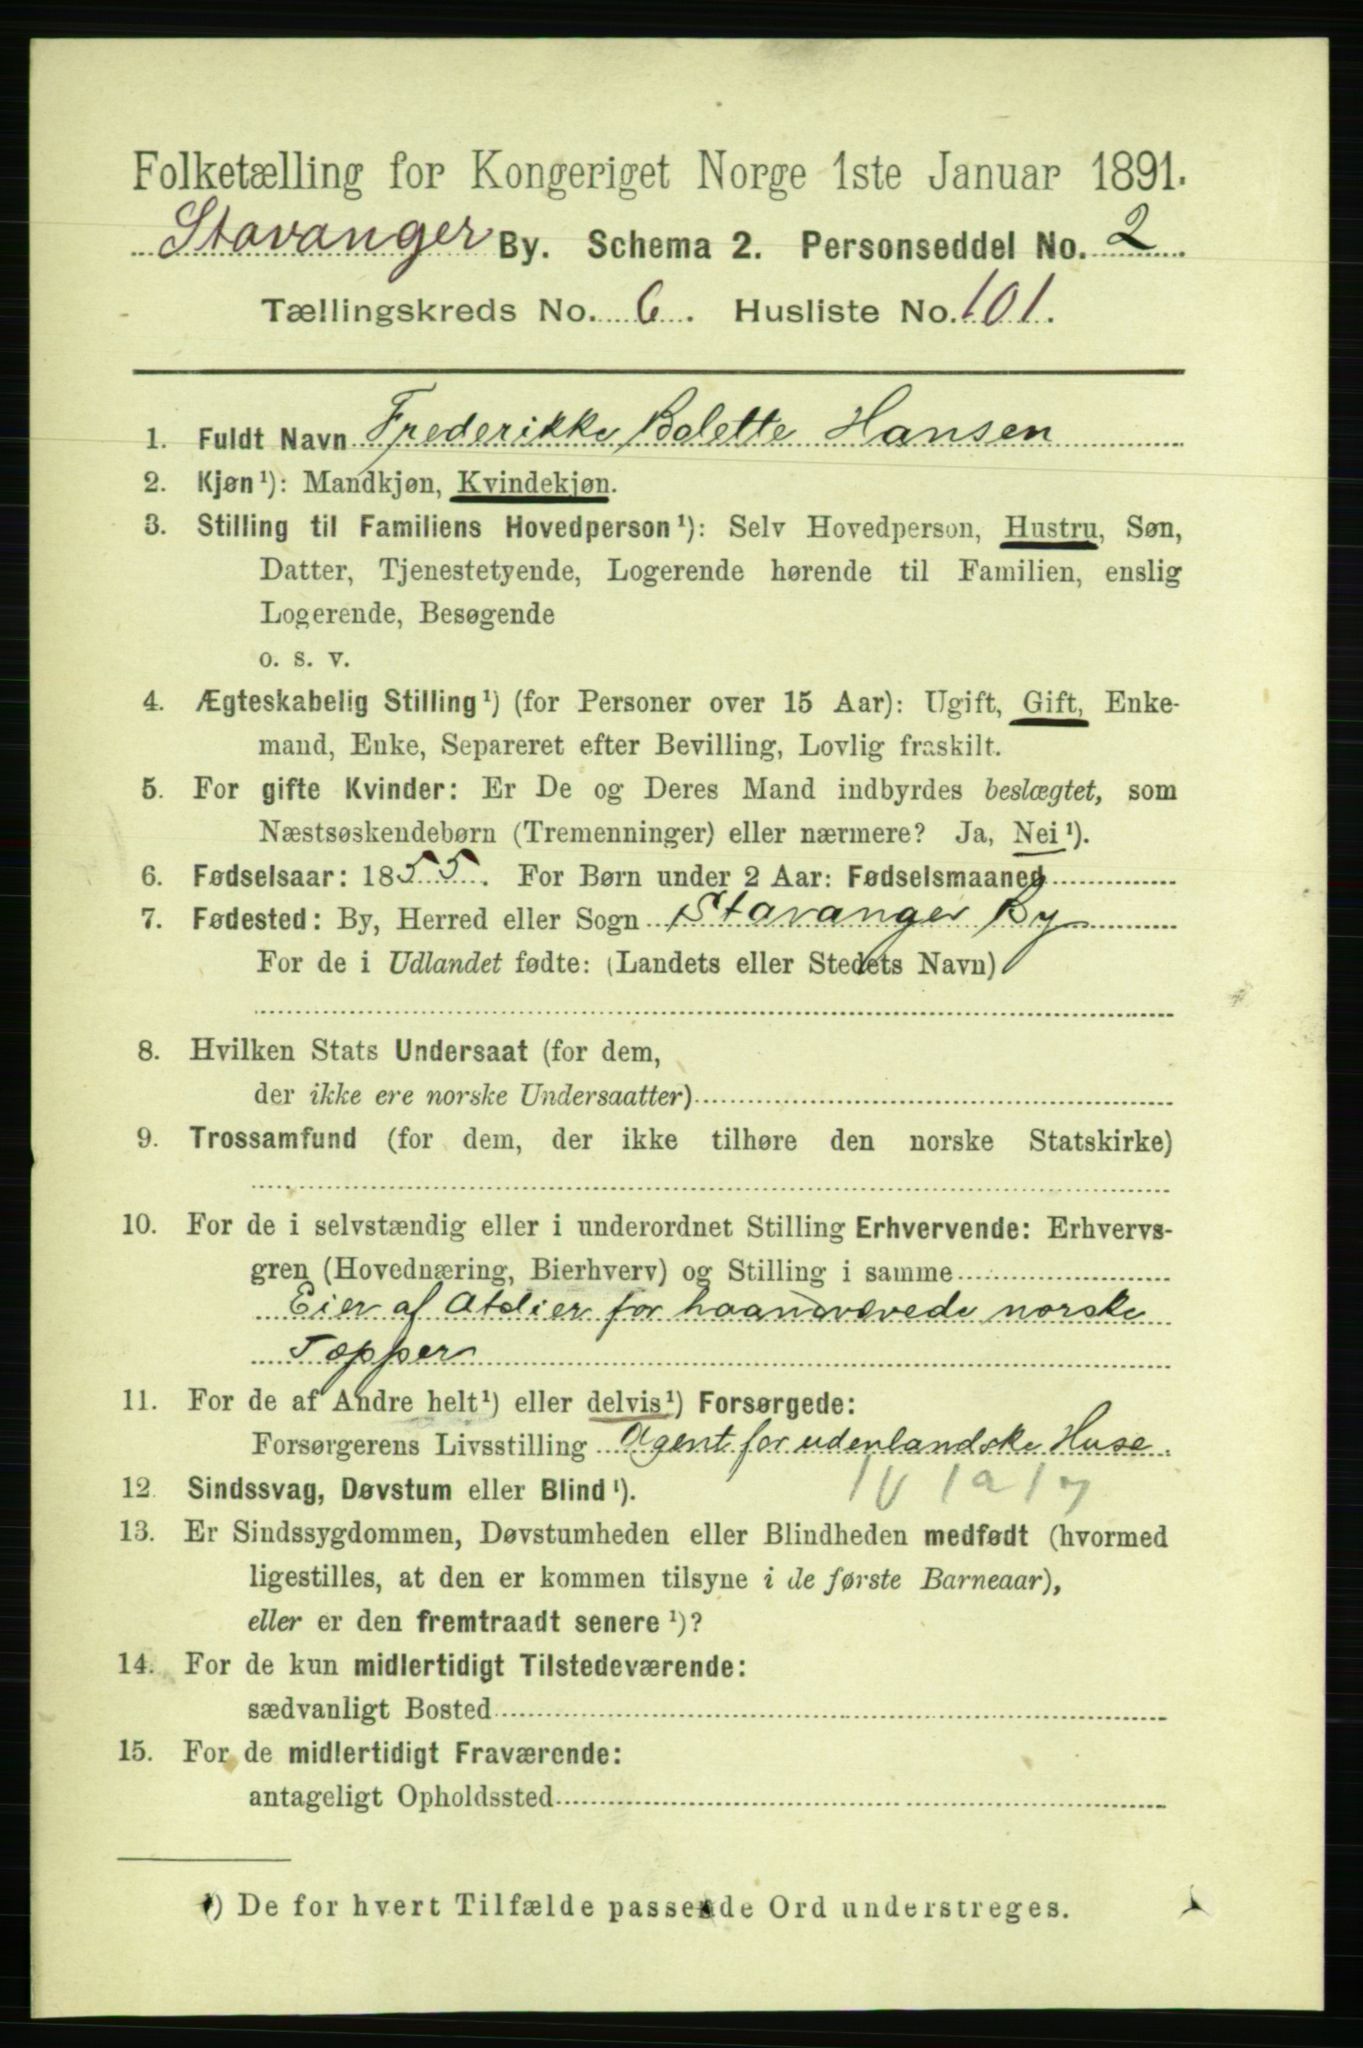 Folketælling for Kongeriget Norge 1ste Januar 1891.
Stavanger By. Schema 2. Personseddel No. 2
Tællingskreds No. 6. Husliste No. 101.
1. Fuldt Navn Frederikke Bolette Hansen
2. Kjøn¹): Mandkjøn, Kvindekjøn.
3. Stilling til Familiens Hovedperson¹): Selv Hovedperson, Hustru, Søn,
Datter, Tjenestetyende, Logerende hørende til Familien, enslig
Logerende, Besøgende
o. s. v.
4. Ægteskabelig Stilling¹) (for Personer over 15 Aar): Ugift, Gift, Enke-
mand, Enke, Separeret efter Bevilling, Lovlig fraskilt.
5. For gifte Kvinder: Er De og Deres Mand indbyrdes beslægtet, som
Næstsøskendebørn (Tremenninger) eller nærmere? Ja, Nei¹).
6. Fødselsaar: 1855. For Børn under 2 Aar: Fødselsmaaned
7. Fødested: By, Herred eller Sogn Stavanger By
For de i Udlandet fødte: (Landets eller Stedets Navn)
8. Hvilken Stats Undersaat (for dem,
der ikke ere norske Undersaatter)
9. Trossamfund (for dem, der ikke tilhøre den norske Statskirke)
10. For de i selvstændig eller i underordnet Stilling Erhvervende: Erhvervs-
gren (Hovednæring, Bierhverv) og Stilling i samme
Eier af Atelier for haandvævede norske
Tæpper
11. For de af Andre helt¹) eller delvis¹) Forsørgede:
Forsørgerens Livsstilling Agent for udenlandske Huse.
12. Sindssvag, Døvstum eller Blind¹).
13. Er Sindssygdommen, Døvstumheden eller Blindheden medfødt (hvormed
ligestilles, at den er kommen tilsyne i de første Barneaar),
eller er den fremtraadt senere¹)?
14. For de kun midlertidigt Tilstedeværende:
sædvanligt Bosted
15. For de midlertidigt Fraværende:
antageligt Opholdssted
¹) De for hvert Tilfælde passende Ord understreges.